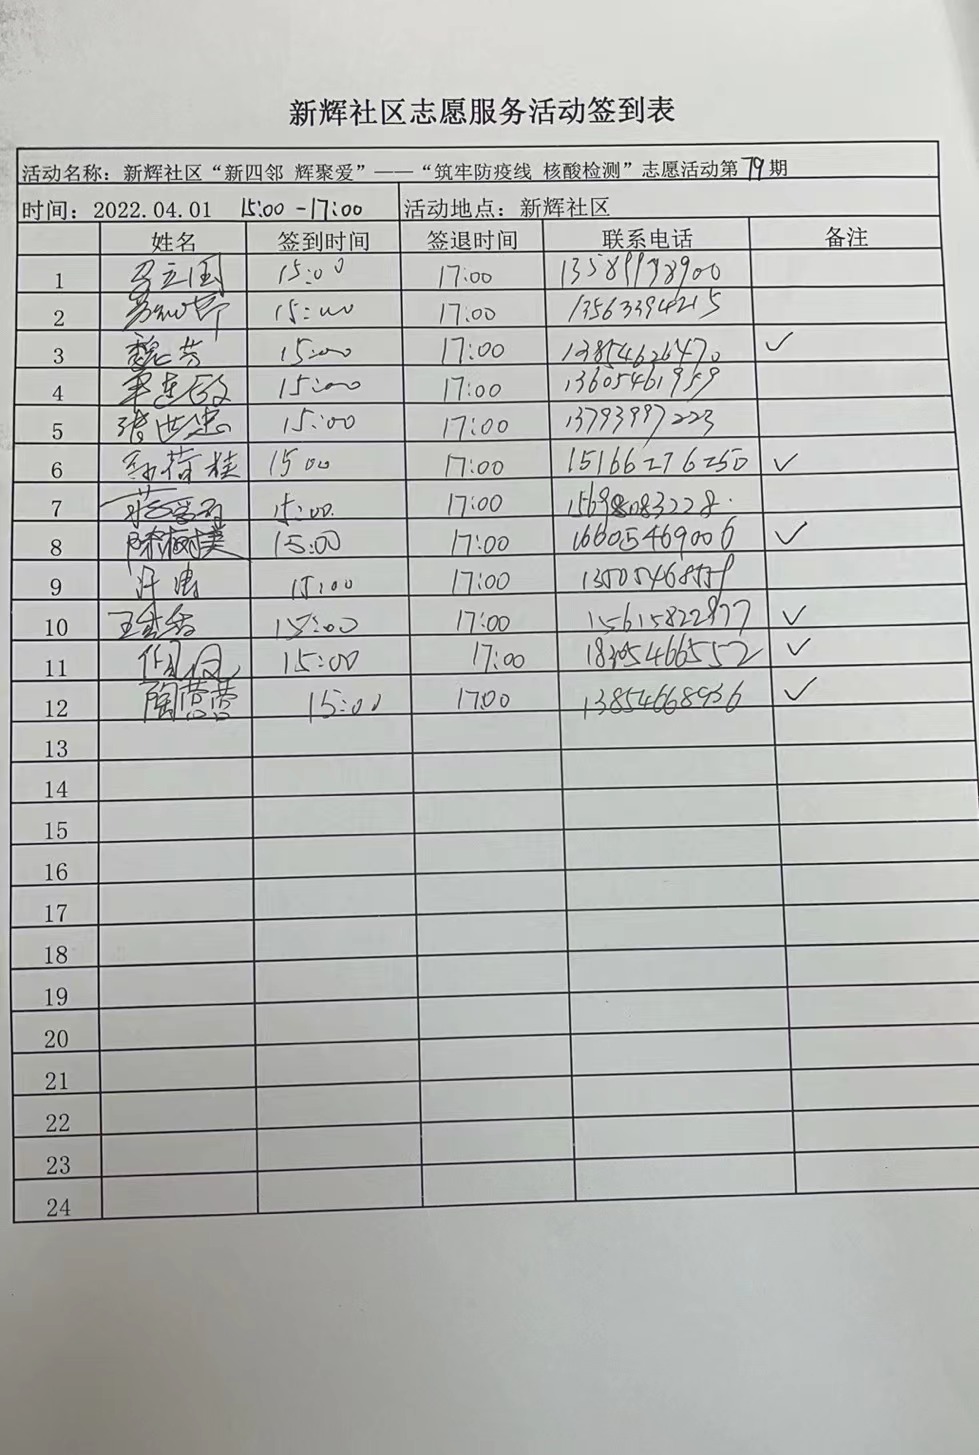 新辉社区志愿服务活动签到表
活动名称：新辉社区“新四邻 辉聚爱”——“筑牢防疫线 核酸检测”志愿活动第79期
时间：2022.04.01 15:00-17:00 活动地点：新辉社区
姓名 签到时间 签退时间 联系电话 备注
1 15:00 17:00
2 15:00 17:00 13563394215
3 魏芳 15:00 17:00 13854626470 ✓
4 15:00 17:00 13605461959
5 15:00 17:00 13793997223
6 15 00 17:00 15166276250 ✓
7 15:00. 17:00 15698083228.
8 15:00 17:00 16605469006 ✓
9 15:00 17:00
10 15:00 17:00 15615822977 ✓
11 15:00 17:00 18305466552 ✓
12 陶营营 15:00 1700 13854668936 ✓
13
14
15
16
17
18
19
20
21
22
23
24